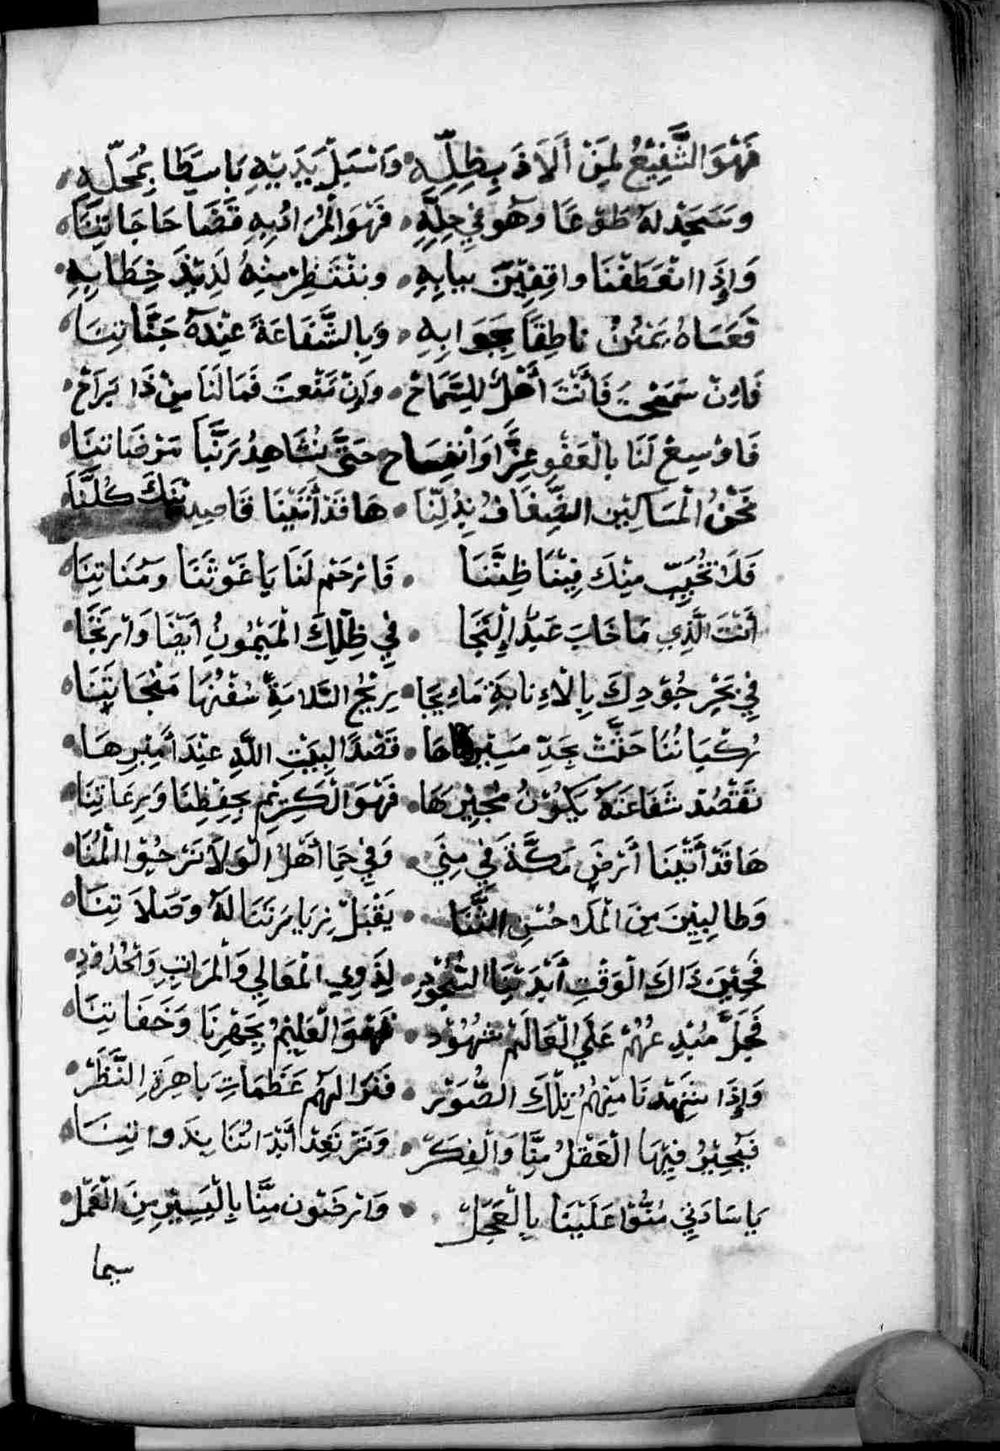 فَهْوَ الشَّفِيْعُ لِمَنْ أَلَاذَ بِظِلِّهِ • وَاسْبَلْ يَدَيْهِ بَاسِطًا بِمُحَلِّهِ •
وسَتَجِدْ لهُ طَوْعًا وهو في حِلِّهِ • فَهْوَ الْمُرَادُ بِهِ قَضَآ حَاجَاتِنَا •
وَإِذَا انْعَطَفْنَا واقِفِيْنَ ببابِهِ • وننْتَظِرْ مِنْهُ لَذِيْذَ خِطَابِهِ •
فَعَسَاهُ يَمْنُنْ ناطِقًا بِجَوَابِهِ • وَبِالشَّفَاعَةَ عِنْدَهُ جَنَّاتِنَا •
فَإِنْ سَمَحْتَ فَأَنْتَ أَهْلٌ لِلسَّمَاحْ • وَإِنْ مَنَعْتَ فَمَا لَنَا مِنْ ذَا بَرَاحْ •
فَاوْسِعْ لَنَا بالْعَفْوِ عِزًّا وَانْفِسَاح حَتَّى نُشَاهِدُ رَبَّنَا مَرْضَاتِنَا •
نَحْنُ الْمَسَاكِيْن الضِّعَافُ بِذُلِّنَا • هَا قَدْ أَتَيْنَا قَاصِدِيْنَكَ كُلُّنَا
فَلَا تُخَيِّبْ مِنْكَ فِيْنَا ظِنَّنَا • فَارْحَمْ لَنَا يَا غَوْثَنَا ومُنَاتِنَا •
أَنْتَ الَّذِي مَا خَابَ عَبْدٌ الْتَجَا • فِي ظِلِّكَ الْمَيْمُونُ أَيْضًا وَارْتَجَا •
فِي بَحْرِ جُوْدِكَ بِالْاِنَابَةِ مَاءِ يجا • رِيْحُ السَّلَامَةِ سُفْنُهَا مَنْجَاتِنَا •
رُكْبَانُنَا حَنَّتْ بِجَدِّ مَسِيْرِهَا • قَصْدًا لِبَيْتِ اللَّهِ عِنْدَ أَمِيْرِهَا •
نَقْصُدْ شَفَاعَتَهُ يَكُوْنُ مُجِيْرهَا • فَهْوَ الْكَرِيْم بِحِفْظِنَا وَرِعَاتِنَا •
هَا قَدْ أَتَيْنَا أَرْضَ مَكَّةَ فِي مِنَي • وَفِي حِمَا أَهْلُ الْوَلَا نَرْجُوْ الْمُنَا •
وَطَالِبِيْنَ مِنَ الْمَلَا حُسْنِ الثَّنَا • يَقْبَلْ زِيَارَتَنَا لَهُ وَصَلَاتِنَا •
فَحِيْنَ ذَاكَ الْوَقْتِ أَبْدَيْنَا السُّجُوْدِ • لِذَوِي الْمَعَالِي وَالْمَرَاتِبِ وَالْحُدُوْدِ •
فَجَلَّ مُبْدِعُهُمْ عَلَي الْعَالَمْ شُهُوْد • فَهْوَ الْعَلِيْمُ بِجَهْرِنَا وَخَفَاتِنَا •
وَإِذَا شَهِدْنَا مِنْهُمْ تِلْكَ الصُّوَرْ • فَنَرَا لَهُمْ عَظَمَاتِ بَاهِرَةِ النَّظَرْ •
فَيُحِيْرُ فِيْهَا الْعَقْلُ مِنَّا وَالْفِكَرْ • وَتَرْتَعِدْ أَبْدَانُنَا بِذَواتِنَا •
يَا سَادَتِي مُنُّوْا عَلَيْنَا بِالْعَجَلْ • وَارْضَوْن مِنَّا بِالْيَسِيْرِ مِنَ الْعَمَلْ •
سيما